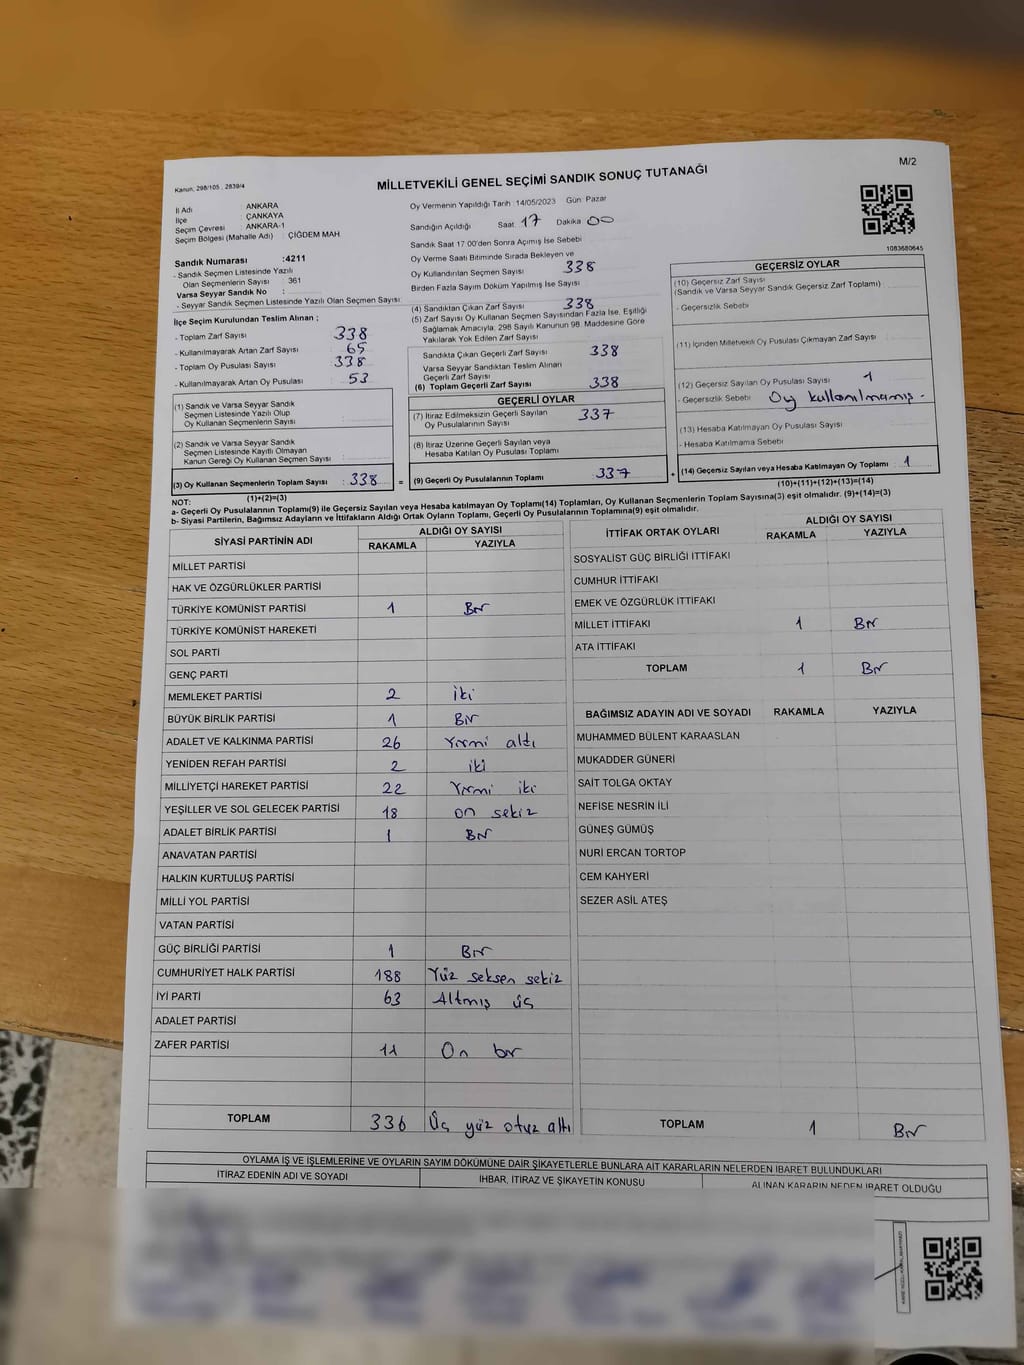 M/2
Kanun, 298/105 , 2839/4
MİLLETVEKİLİ GENEL SEÇİMİ SANDIK SONUÇ TUTANAĞI
İl Adı : ANKARA
İlçe : ÇANKAYA
Seçim Çevresi : ANKARA-1
Seçim Bölgesi (Mahalle Adı) : ÇİĞDEM MAH.
Sandık Numarası :4211
- Sandık Seçmen Listesinde Yazılı
Olan Seçmenlerin Sayısı : 361
Varsa Seyyar Sandık No :
- Seyyar Sandık Seçmen Listesinde Yazılı Olan Seçmen Sayısı:
İlçe Seçim Kurulundan Teslim Alınan ;
- Toplam Zarf Sayısı : 338
- Kullanılmayarak Artan Zarf Sayısı : 65
- Toplam Oy Pusulası : 338
- Kullanılmayarak Artan Oy Pusulası : 53
(1) Sandık ve Varsa Seyyar Sandık
Seçmen Listesinde Yazılı Olup
Oy Kullanan Seçmenlerin Sayısı :
(2) Sandık ve Varsa Seyyar Sandık
Seçmen Listesinde Kayıtlı Olmayan
Kanun Gereği Oy Kullanan Seçmen Sayısı :
(3) Oy Kullanan Seçmenlerin Toplam Sayısı : 338
(1)+(2)=(3)
Oy Vermenin Yapıldığı Tarih :14/05/2023 Gün :Pazar
Sandığın Açıldığı Saat :17 Dakika :00
Sandık Saat 17:00'den Sonra Açımış İse Sebebi
Oy Verme Saati Bitiminde Sırada Bekleyen ve
Oy Kullandırılan Seçmen Sayısı : 338
Birden Fazla Sayım Döküm Yapılmış İse Sayısı :
(4) Sandıktan Çıkan Zarf Sayısı : 338
(5) Zarf Sayısı Oy Kullanan Seçmen Sayısından Fazla İse, Eşitliği
Sağlamak Amacıyla; 298 Sayılı Kanunun 98. Maddesine Göre
Yakılarak Yok Edilen Zarf Sayısı
Sandıkta Çıkan Geçerli Zarf Sayısı : 338
Varsa Seyyar Sandıktan Teslim Alınan
Geçerli Zarf Sayısı
(6) Toplam Geçerli Zarf Sayısı : 338
GEÇERLİ OYLAR
(7) İtiraz Edilmeksizin Geçerli Sayılan
Oy Pusulalarının Sayısı : 337
(8) İtiraz Üzerine Geçerli Sayılan veya
Hesaba Katılan Oy Pusulası Toplamı
= (9) Geçerli Oy Pusulalarının Toplamı : 337
1083680645
GEÇERSİZ OYLAR
(10) Geçersiz Zarf Sayısı
(Sandık ve Varsa Seyyar Sandık Geçersiz Zarf Toplamı) :
- Geçersizlik Sebebi :
(11) İçinden Milletvekili Oy Pusulası Çıkmayan Zarf Sayısı :
(12) Geçersiz Sayılan Oy Pusulası Sayısı : 1
- Geçersizlik Sebebi : Oy kullanılmamış.
(13) Hesaba Katılmayan Oy Pusulası Sayısı :
- Hesaba Katılmama Sebebi :
+ (14) Geçersiz Sayılan veya Hesaba Katılmayan Oy Toplamı : 1
(10)+(11)+(12)+(13)=(14)
NOT:
a- Geçerli Oy Pusulalarının Toplamı(9) ile Geçersiz Sayılan veya Hesaba katılmayan Oy Toplamı(14) Toplamları, Oy Kullanan Seçmenlerin Toplam Sayısına(3) eşit olmalıdır. (9)+(14)=(3)
b- Siyasi Partilerin, Bağımsız Adayların ve İttifakların Aldığı Ortak Oyların Toplamı, Geçerli Oy Pusulalarının Toplamına(9) eşit olmalıdır.
SİYASİ PARTİNİN ADI ALDIĞI OY SAYISI
RAKAMLA YAZIYLA
MİLLET PARTİSİ
HAK VE ÖZGÜRLÜKLER PARTİSİ
TÜRKİYE KOMÜNİST PARTİSİ 1 Bir
TÜRKİYE KOMÜNİST HAREKETİ
SOL PARTİ
GENÇ PARTİ
MEMLEKET PARTİSİ 2 iki
BÜYÜK BİRLİK PARTİSİ 1 Bir
ADALET VE KALKINMA PARTİSİ 26 Yirmi altı
YENİDEN REFAH PARTİSİ 2 iki
MİLLİYETÇİ HAREKET PARTİSİ 22 Yirmi iki
YEŞİLLER VE SOL GELECEK PARTİSİ 18 on sekiz
ADALET BİRLİK PARTİSİ 1 Bir
ANAVATAN PARTİSİ
HALKIN KURTULUŞ PARTİSİ
MİLLİ YOL PARTİSİ
VATAN PARTİSİ
GÜÇ BİRLİĞİ PARTİSİ 1 Bir
CUMHURİYET HALK PARTİSİ 188 Yüz seksen sekiz
İYİ PARTİ 63 Altmış üç
ADALET PARTİSİ
ZAFER PARTİSİ 11 On bir
TOPLAM 336 Üç yüz otuz altı
İTTİFAK ORTAK OYLARI ALDIĞI OY SAYISI
RAKAMLA YAZIYLA
SOSYALİST GÜÇ BİRLİĞİ İTTİFAKI
CUMHUR İTTİFAKI
EMEK VE ÖZGÜRLÜK İTTİFAKI
MİLLET İTTİFAKI 1 Bir
ATA İTTİFAKI
TOPLAM 1 Bir
BAĞIMSIZ ADAYIN ADI VE SOYADI RAKAMLA YAZIYLA
MUHAMMED BÜLENT KARAASLAN
MUKADDER GÜNERİ
SAİT TOLGA OKTAY
NEFİSE NESRİN İLİ
GÜNEŞ GÜMÜŞ
NURİ ERCAN TORTOP
CEM KAHYERİ
SEZER ASİL ATEŞ
TOPLAM 1 Bir
OYLAMA İŞ VE İŞLEMLERİNE VE OYLARIN SAYIM DÖKÜMÜNE DAİR ŞİKAYETLERLE BUNLARA AİT KARARLARIN NELERDEN İBARET BULUNDUKLARI
İTİRAZ EDENİN ADI VE SOYADI İHBAR, İTİRAZ VE ŞİKAYETİN KONUSU ALINAN KARARIN NEDEN İBARET OLDUĞU